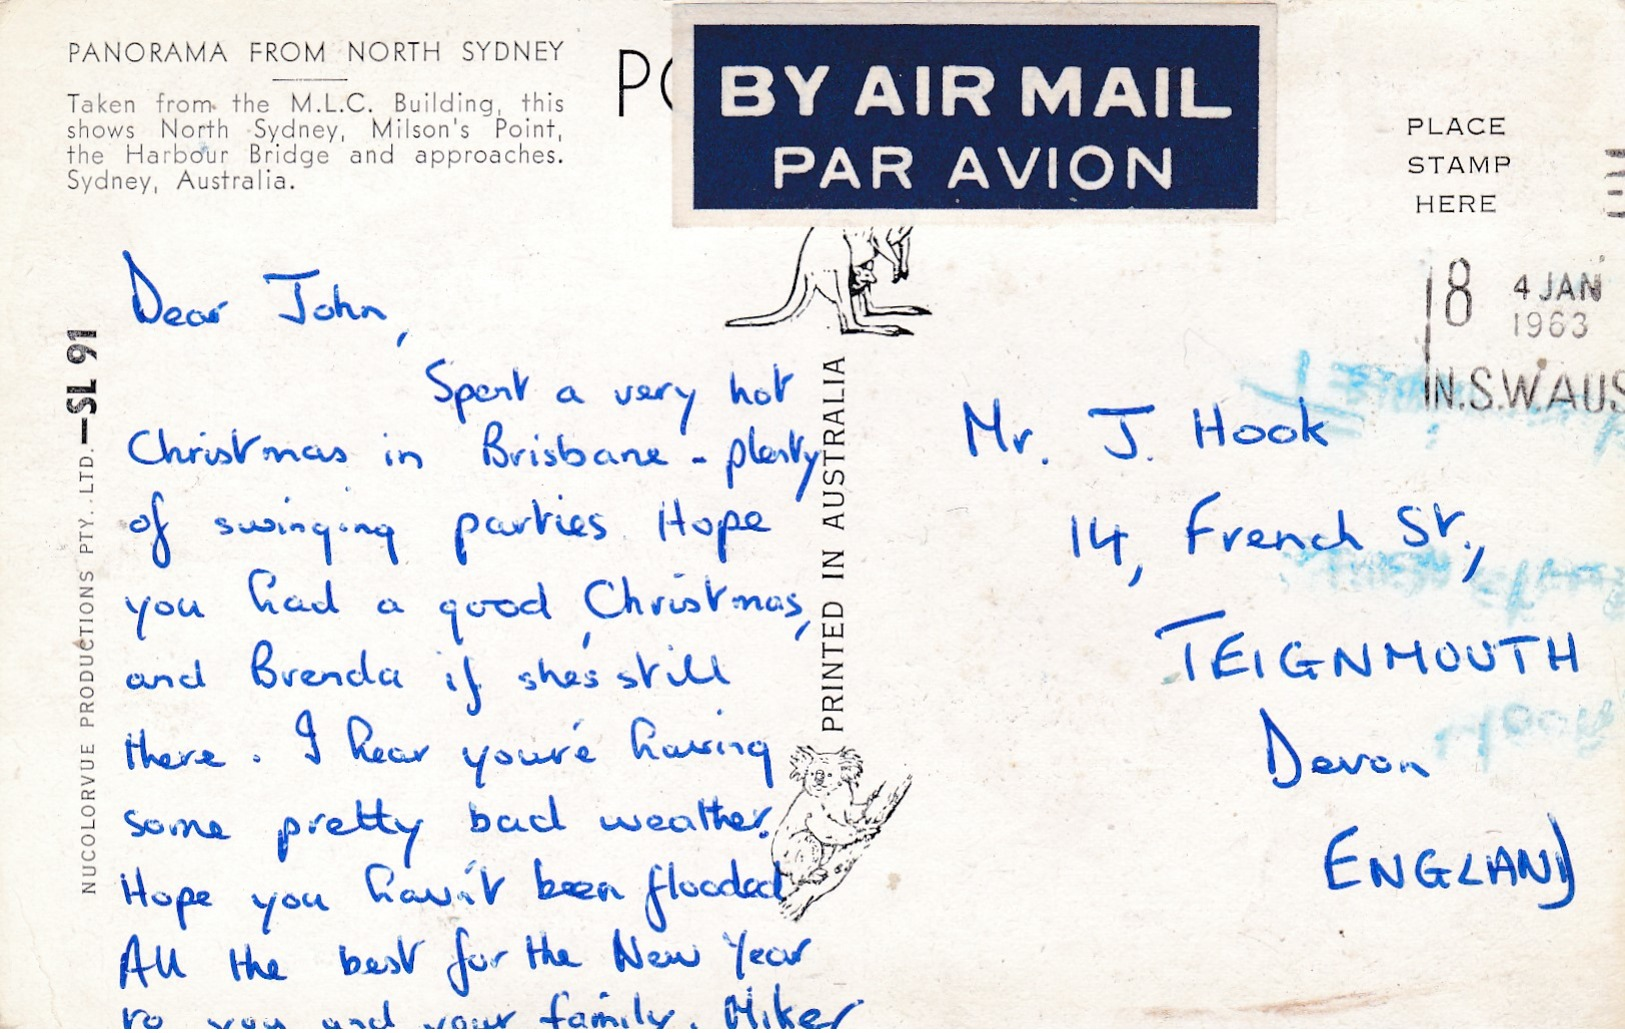 PANORAMA FROM NORTH SYDNEY
Taken from the M.L.C. Building, this
shows North Sydney, Milson's Point,
the Harbour Bridge and approaches.
Sydney, Australia.
PO
BY AIR MAIL
PAR AVION
PLACE
STAMP
HERE
18 4 JAN
1963
N.S.W. AUS
NUCOLORVUE PRODUCTIONS PTY. LTD.—SL 91
PRINTED IN AUSTRALIA
Dear John,
Spent a very hot
Christmas in Brisbane - plenty
of swinging parties Hope
you had a good Christmas,
and Brenda if she's still
there. I hear you're having
some pretty bad weather.
Hope you havn't been flooded
All the best for the New Year
to you and your family.
Mr. J. Hook
14, French St.,
TEIGNMOUTH
Devon
ENGLAND